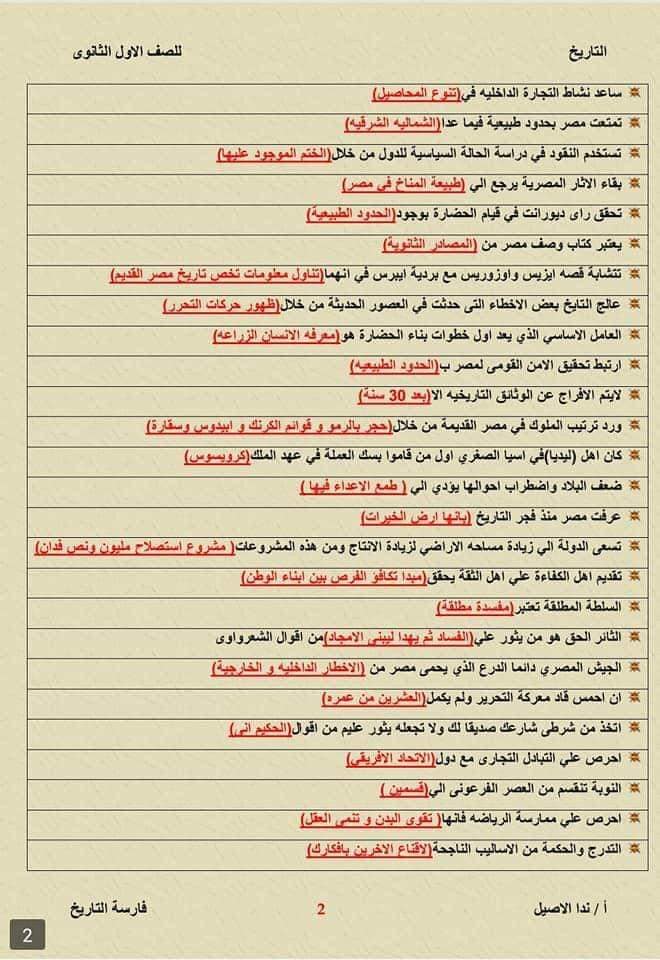 التاريخ للصف الاول الثانوى
ساعد نشاط التجارة الداخليه في(تنوع المحاصيل)
تمتعت مصر بحدود طبيعية فيما عدا(الشماليه الشرقيه)
تستخدم النقود في دراسة الحالة السياسية للدول من خلال(الختم الموجود عليها)
بقاء الاثار المصرية يرجع الي (طبيعة المناخ في مصر)
تحقق راى ديورانت في قيام الحضارة بوجود(الحدود الطبيعية)
يعتبر كتاب وصف مصر من (المصادر الثانوية)
تتشابة قصه ايزيس واوزوريس مع بردية ايبرس في انهما(تتناول معلومات تخص تاريخ مصر القديم)
عالج التايخ بعض الاخطاء التى حدثت في العصور الحديثة من خلال(ظهور حركات التحرر)
العامل الاساسي الذي يعد اول خطوات بناء الحضارة هو(معرفه الانسان الزراعه)
ارتبط تحقيق الامن القومى لمصر ب(الحدود الطبيعيه)
لايتم الافراج عن الوثائق التاريخيه الا(بعد 30 سنة)
ورد ترتيب الملوك في مصر القديمة من خلال(حجر بالرمو و قوائم الكرنك و ابيدوس وسقارة)
كان اهل (ليديا)في اسيا الصغري اول من قاموا بسك العملة في عهد الملك(كرويسوس)
ضعف البلاد واضطراب احوالها يؤدي الي ( طمع الاعداء فيها )
عرفت مصر منذ فجر التاريخ (بانها ارض الخيرات)
تسعى الدولة الي زيادة مساحه الاراضي لزيادة الانتاج ومن هذه المشروعات( مشروع استصلاح مليون ونص فدان)
تقديم اهل الكفاءة علي اهل الثقة يحقق(مبدا تكافؤ الفرص بين ابناء الوطن)
السلطة المطلقة تعتبر(مفسدة مطلقة)
الثائر الحق هو من يثور علي(الفساد ثم يهدا ليبنى الامجاد)من اقوال الشعرواوى
الجيش المصري دائما الدرع الذي يحمى مصر من (الاخطار الداخليه و الخارجية)
ان احمس قاد معركة التحرير ولم يكمل(العشرين من عمره)
اتخذ من شرطى شارعك صديقا لك ولا تجعله يثور عليم من اقوال(الحكيم انى)
احرص علي التبادل التجارى مع دول(الاتحاد الافريقي)
النوبة تنقسم من العصر الفرعونى الي(قسمين )
احرص علي ممارسة الرياضه فانها( تقوى البدن و تنمى العقل)
التدرج والحكمة من الاساليب الناجحة(لاقناع الاخرين بافكارك)
أ / ندا الاصيل 2 فارسة التاريخ
2